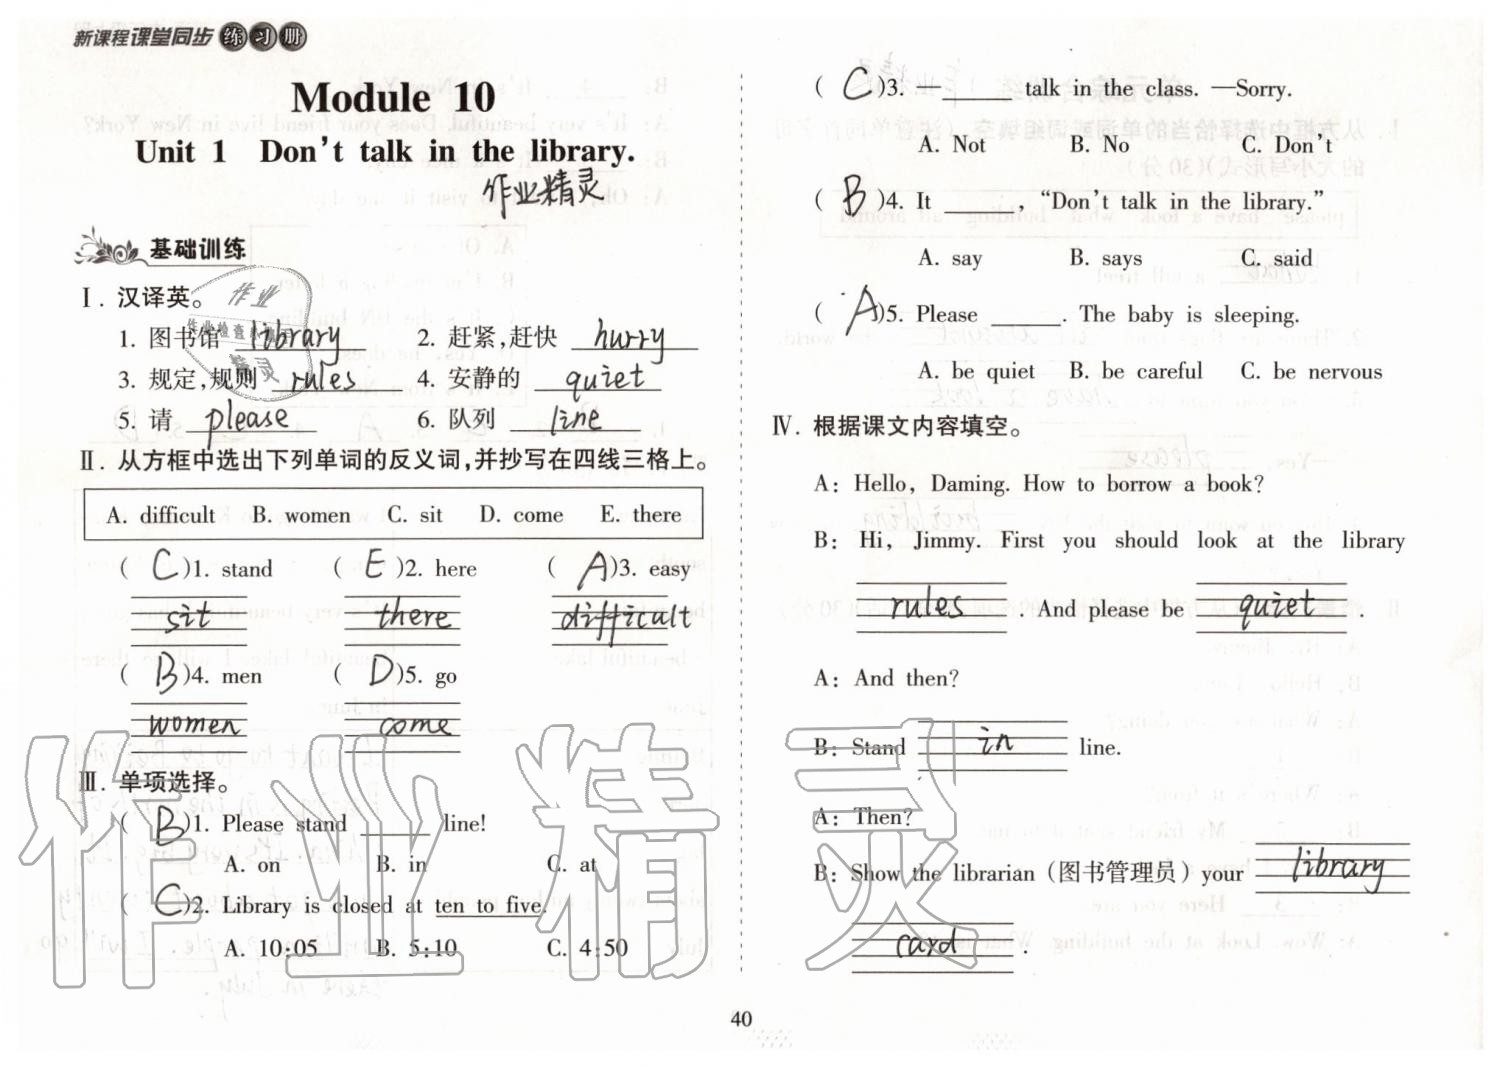 新课程课堂同步练习册
Module 10
Unit 1 Don't talk in the library.
作业精灵
基础训练
Ⅰ. 汉译英。
作业
作业检查小
精灵
1. 图书馆 library 2. 赶紧,赶快 hurry
3. 规定,规则 rules 4. 安静的 quiet
5. 请 please 6. 队列 line
Ⅱ. 从方框中选出下列单词的反义词,并抄写在四线三格上。
A. difficult B. women C. sit D. come E. there
( C )1. stand ( E )2. here ( A )3. easy
sit there difficult
( B )4. men ( D )5. go
women come
Ⅲ. 单项选择。
( B )1. Please stand ______ line!
A. on B. in C. at
( C )2. Library is closed at ten to five.
A. 10:05 B. 5:10 C. 4:50
( C )3. —______ talk in the class. —Sorry.
A. Not B. No C. Don't
( B )4. It ______, "Don't talk in the library."
A. say B. says C. said
( A )5. Please ______. The baby is sleeping.
A. be quiet B. be careful C. be nervous
Ⅳ. 根据课文内容填空。
A: Hello, Daming. How to borrow a book?
B: Hi, Jimmy. First you should look at the library
rules. And please be quiet.
A: And then?
B: Stand in line.
A: Then?
B: Show the librarian (图书管理员) your library
card.
作业精灵
40